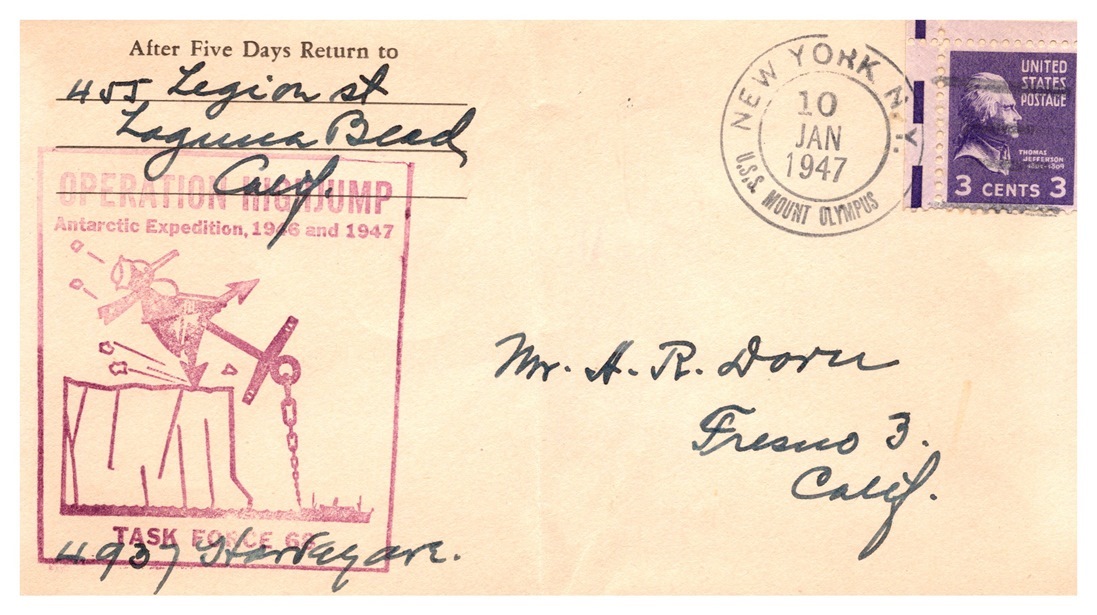 After Five Days Return to
455 Legion St
Laguna Beach
Calif.
OPERATION HIGHJUMP
Antarctic Expedition, 1946 and 1947
TASK FORCE 68
4937 Harvey ave.
NEW YORK N.Y.
10
JAN
1947
U.S.S. MOUNT OLYMPUS
UNITED
STATES
POSTAGE
THOMAS
JEFFERSON
1801-1809
3 CENTS 3
Mr. H. R. Dorn
Fresno 3.
Calif.